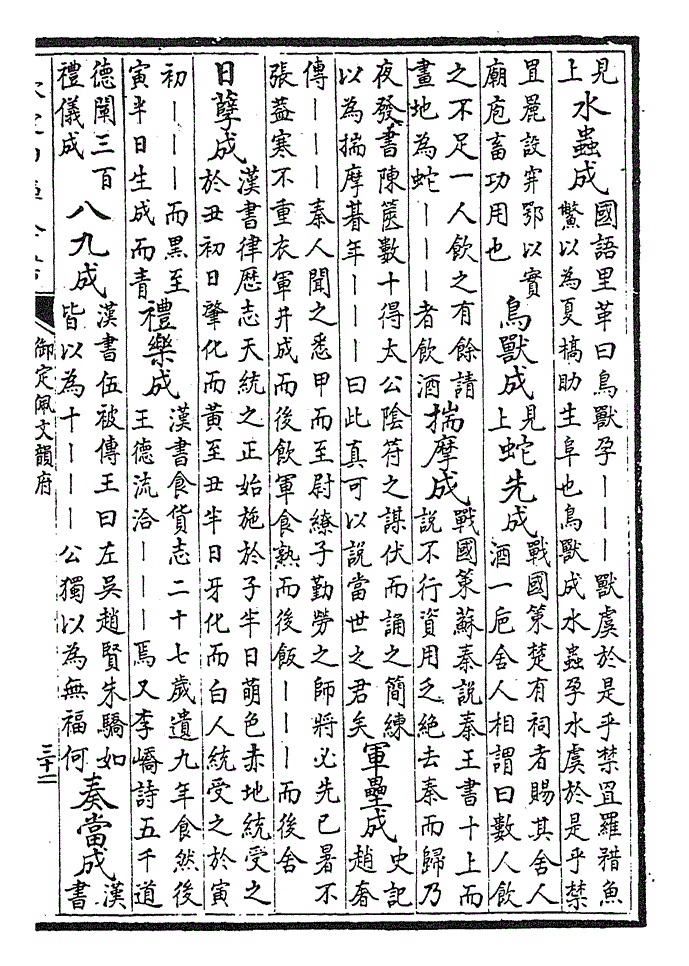 見
上
水蟲成
國語里革曰鳥獸孕｜｜｜獸虞於是乎禁罝羅矠魚
鱉以為夏槁助生阜也鳥獸成水蟲孕水虞於是乎禁
罝麗設穽鄂以實
廟庖畜功用也
鳥獸成
見
上
蛇先成
戰國策楚有祠者賜其舍人
酒一卮舍人相謂曰數人飲
之不足一人飲之有餘請
畫地為蛇｜｜｜者飲酒
揣摩成
戰國策蘇秦說秦王書十上而
說不行資用乏絕去秦而歸乃
夜發書陳篋數十得太公陰符之謀伏而誦之簡練
以為揣摩朞年｜｜｜曰此真可以說當世之君矣
軍壘成
史記
趙奢
傳｜｜｜秦人聞之悉甲而至尉繚子勤勞之師將必先已暑不
張蓋寒不重衣軍井成而後飲軍食熟而後飯｜｜｜而後舍
日孽成
漢書律歷志天統之正始施於子半日萌色赤地統受之
於丑初日肇化而黃至丑半日牙化而白人統受之於寅
初｜｜｜而黑至
寅半日生成而青
禮樂成
漢書食貨志二十七歲遺九年食然後
王德流洽｜｜｜焉又李嶠詩五千道
德闡三百
禮儀成
八九成
漢書伍被傳王曰左吳趙賢朱驕如
皆以為十｜｜｜公獨以為無福何
奏當成
漢
書
御定佩文韻府
三十二